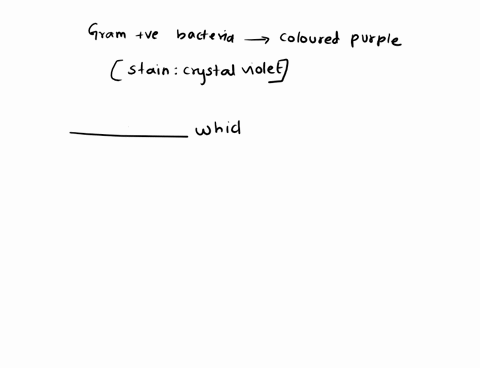 Gram +ve bacteria → coloured purple
[stain : crystal violet]
________ whic